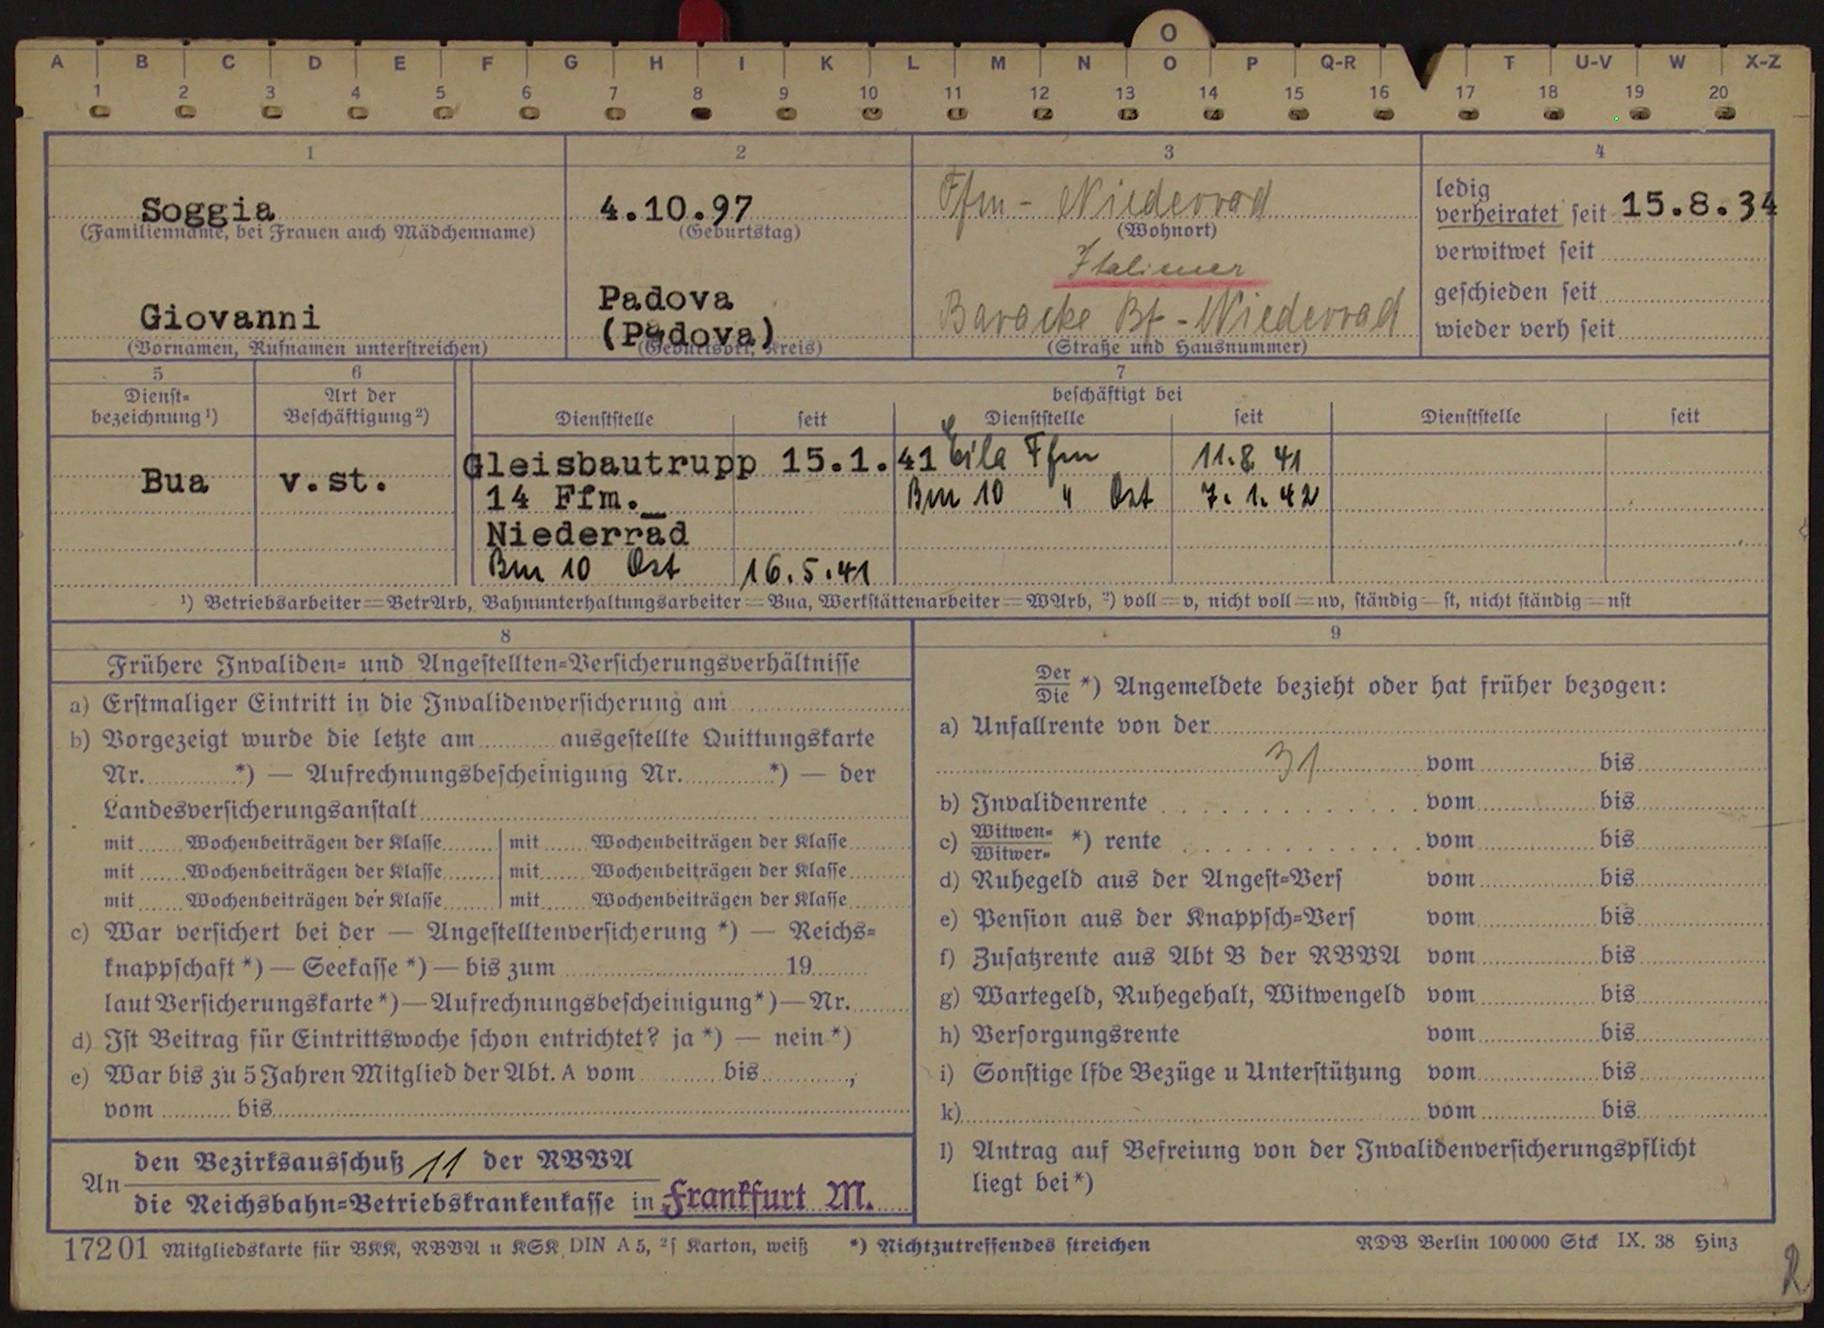 O
A B C D E F G H I K L M N O P Q-R T U-V W X-Z
1 2 3 4 5 6 7 8 9 10 11 12 13 14 15 16 17 18 19 20
1
Soggia
(Familienname, bei Frauen auch Mädchenname)
Giovanni
(Vornamen, Rufnamen unterstreichen)
2
4.10.97
(Geburtstag)
Padova
(Padova)
(Geburtsort, Kreis)
3
Ffm - Niederrad
(Wohnort)
Italiener
Baracke Bf - Niederrad
(Straße und Hausnummer)
4
ledig
verheiratet seit 15.8.34
verwitwet seit
geschieden seit
wieder verh seit
5
Dienst=
bezeichnung¹)
Bua
6
Art der
Beschäftigung²)
v.st.
7
beschäftigt bei
Dienststelle seit Dienststelle seit Dienststelle seit
Gleisbautrupp 15.1.41 Eila Ffm 11.8 41
14 Ffm._ Bm 10 " Ost 7.1.42
Niederrad
Bm 10 Ost 16.5.41
¹) Betriebsarbeiter=BetrArb, Bahnunterhaltungsarbeiter=Bua, Werkstättenarbeiter=WArb, ²) voll=v, nicht voll=nv, ständig=st, nicht ständig=nst
8
Frühere Invaliden= und Angestellten=Versicherungsverhältnisse
a) Erstmaliger Eintritt in die Invalidenversicherung am
b) Vorgezeigt wurde die letzte am ausgestellte Quittungskarte
Nr. *) — Aufrechnungsbescheinigung Nr. *) — der
Landesversicherungsanstalt
mit Wochenbeiträgen der Klasse mit Wochenbeiträgen der Klasse
mit Wochenbeiträgen der Klasse mit Wochenbeiträgen der Klasse
mit Wochenbeiträgen der Klasse mit Wochenbeiträgen der Klasse
c) War versichert bei der — Angestelltenversicherung *) — Reichs=
knappschaft *) — Seekasse *) — bis zum 19
laut Versicherungskarte*)—Aufrechnungsbescheinigung*)—Nr.
d) Ist Beitrag für Eintrittswoche schon entrichtet? ja *) — nein *)
e) War bis zu 5 Jahren Mitglied der Abt. A vom bis ,
vom bis
An
den Bezirksausschuß 11 der RBVA
die Reichsbahn=Betriebskrankenkasse in Frankfurt M.
9
Der
Die *) Angemeldete bezieht oder hat früher bezogen:
a) Unfallrente von der
31 vom bis
b) Invalidenrente vom bis
c) Witwen=
Witwer= *) rente vom bis
d) Ruhegeld aus der Angest=Vers vom bis
e) Pension aus der Knappsch=Vers vom bis
f) Zusatzrente aus Abt B der RBVA vom bis
g) Wartegeld, Ruhegehalt, Witwengeld vom bis
h) Versorgungsrente vom bis
i) Sonstige lfde Bezüge u Unterstützung vom bis
k) vom bis
l) Antrag auf Befreiung von der Invalidenversicherungspflicht
liegt bei *)
172 01 Mitgliedskarte für BKK, RBVA u KSK DIN A 5, ²f Karton, weiß *) Nichtzutreffendes streichen RDB Berlin 100 000 Stck IX. 38 Hinz